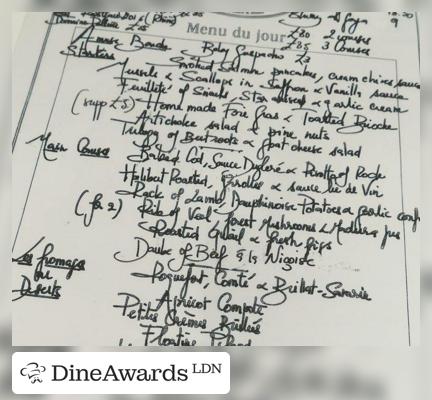 Menu du jour
£30 2 courses
£35 3 courses
Amuse Bouche Baby Gaspacho £3
Starters
Smoked Salmon pancakes, cream chives sauce
Mussels & Scallops in Saffron & Vanilla sauce
Feuilleté of Snails, & garlic cream
(supp £5) Home made Foie Gras & Toasted Brioche
Artichoke salad & pine nuts
of Beetroots & Goat cheese salad
Main Course
Cod, Sauce Dugléré &
Halibut Roasted, Girolles & sauce lie de Vin
(for 2) Rack of Lamb, Dauphinoise Potatoes & garlic conf
of Veal, forest Mushrooms & Madeira jus
Roasted Quail & fresh figs
Daube of Beef à la Niçoise
Les fromages
ou
Deserts
Roquefort, Comté & Brillat-Savarin
Apricot Compote
Petites Crèmes Brûlées
DineAwards LDN